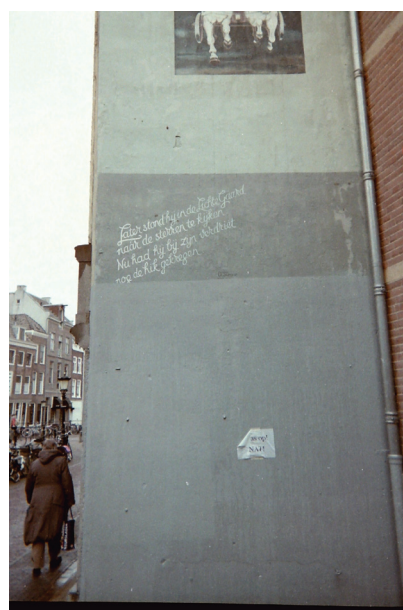 Later stond hij in de Lichte Gaard
naar de sterren te kijken.
Nu had hij bij zijn verdriet
nog de hik gekregen